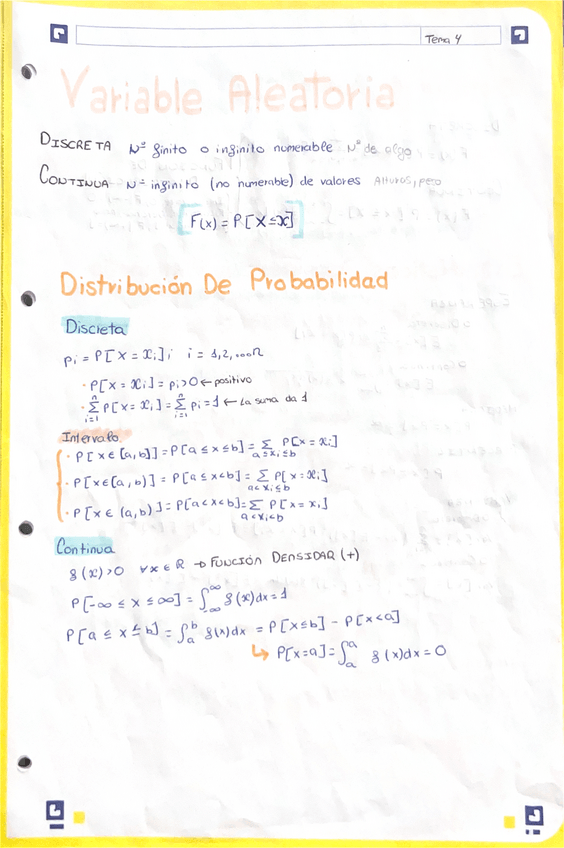 Tema 4
Variable Aleatoria
DISCRETA Nº finito o infinito numerable Nº de algo
CONTINUA Nº infinito (no numerable) de valores Alturas, peso
F(x) = P[X ≤ x]
Distribución De Probabilidad
Discreta
pi = P[X = xi] ; i = 1,2,...n
· P[X = xi] = pi > 0 ← positivo
· ∑ⁿᵢ₌₁ P[X = xi] = ∑ⁿᵢ₌₁ pi = 1 ← La suma da 1
Intervalo
· P[X ∈ [a,b]] = P[a ≤ x ≤ b] = ∑ a≤xi≤b P[X = xi]
· P[x∈[a,b)] = P[a ≤ x < b] = ∑ a<xi≤b P[x = xi]
· P[x ∈ (a,b)] = P[a < x < b] = ∑ a<xi<b P[x = xi]
Continua
f(x) > 0 ∀x ∈ R → FUNCIÓN DENSIDAR (+)
P[-∞ ≤ x ≤ ∞] = ∫_{-∞}^{∞} f(x)dx = 1
P[a ≤ x ≤ b] = ∫_a^b f(x)dx = P[x ≤ b] - P[x < a]
↳ P[x=a] = ∫_a^a f(x)dx = 0